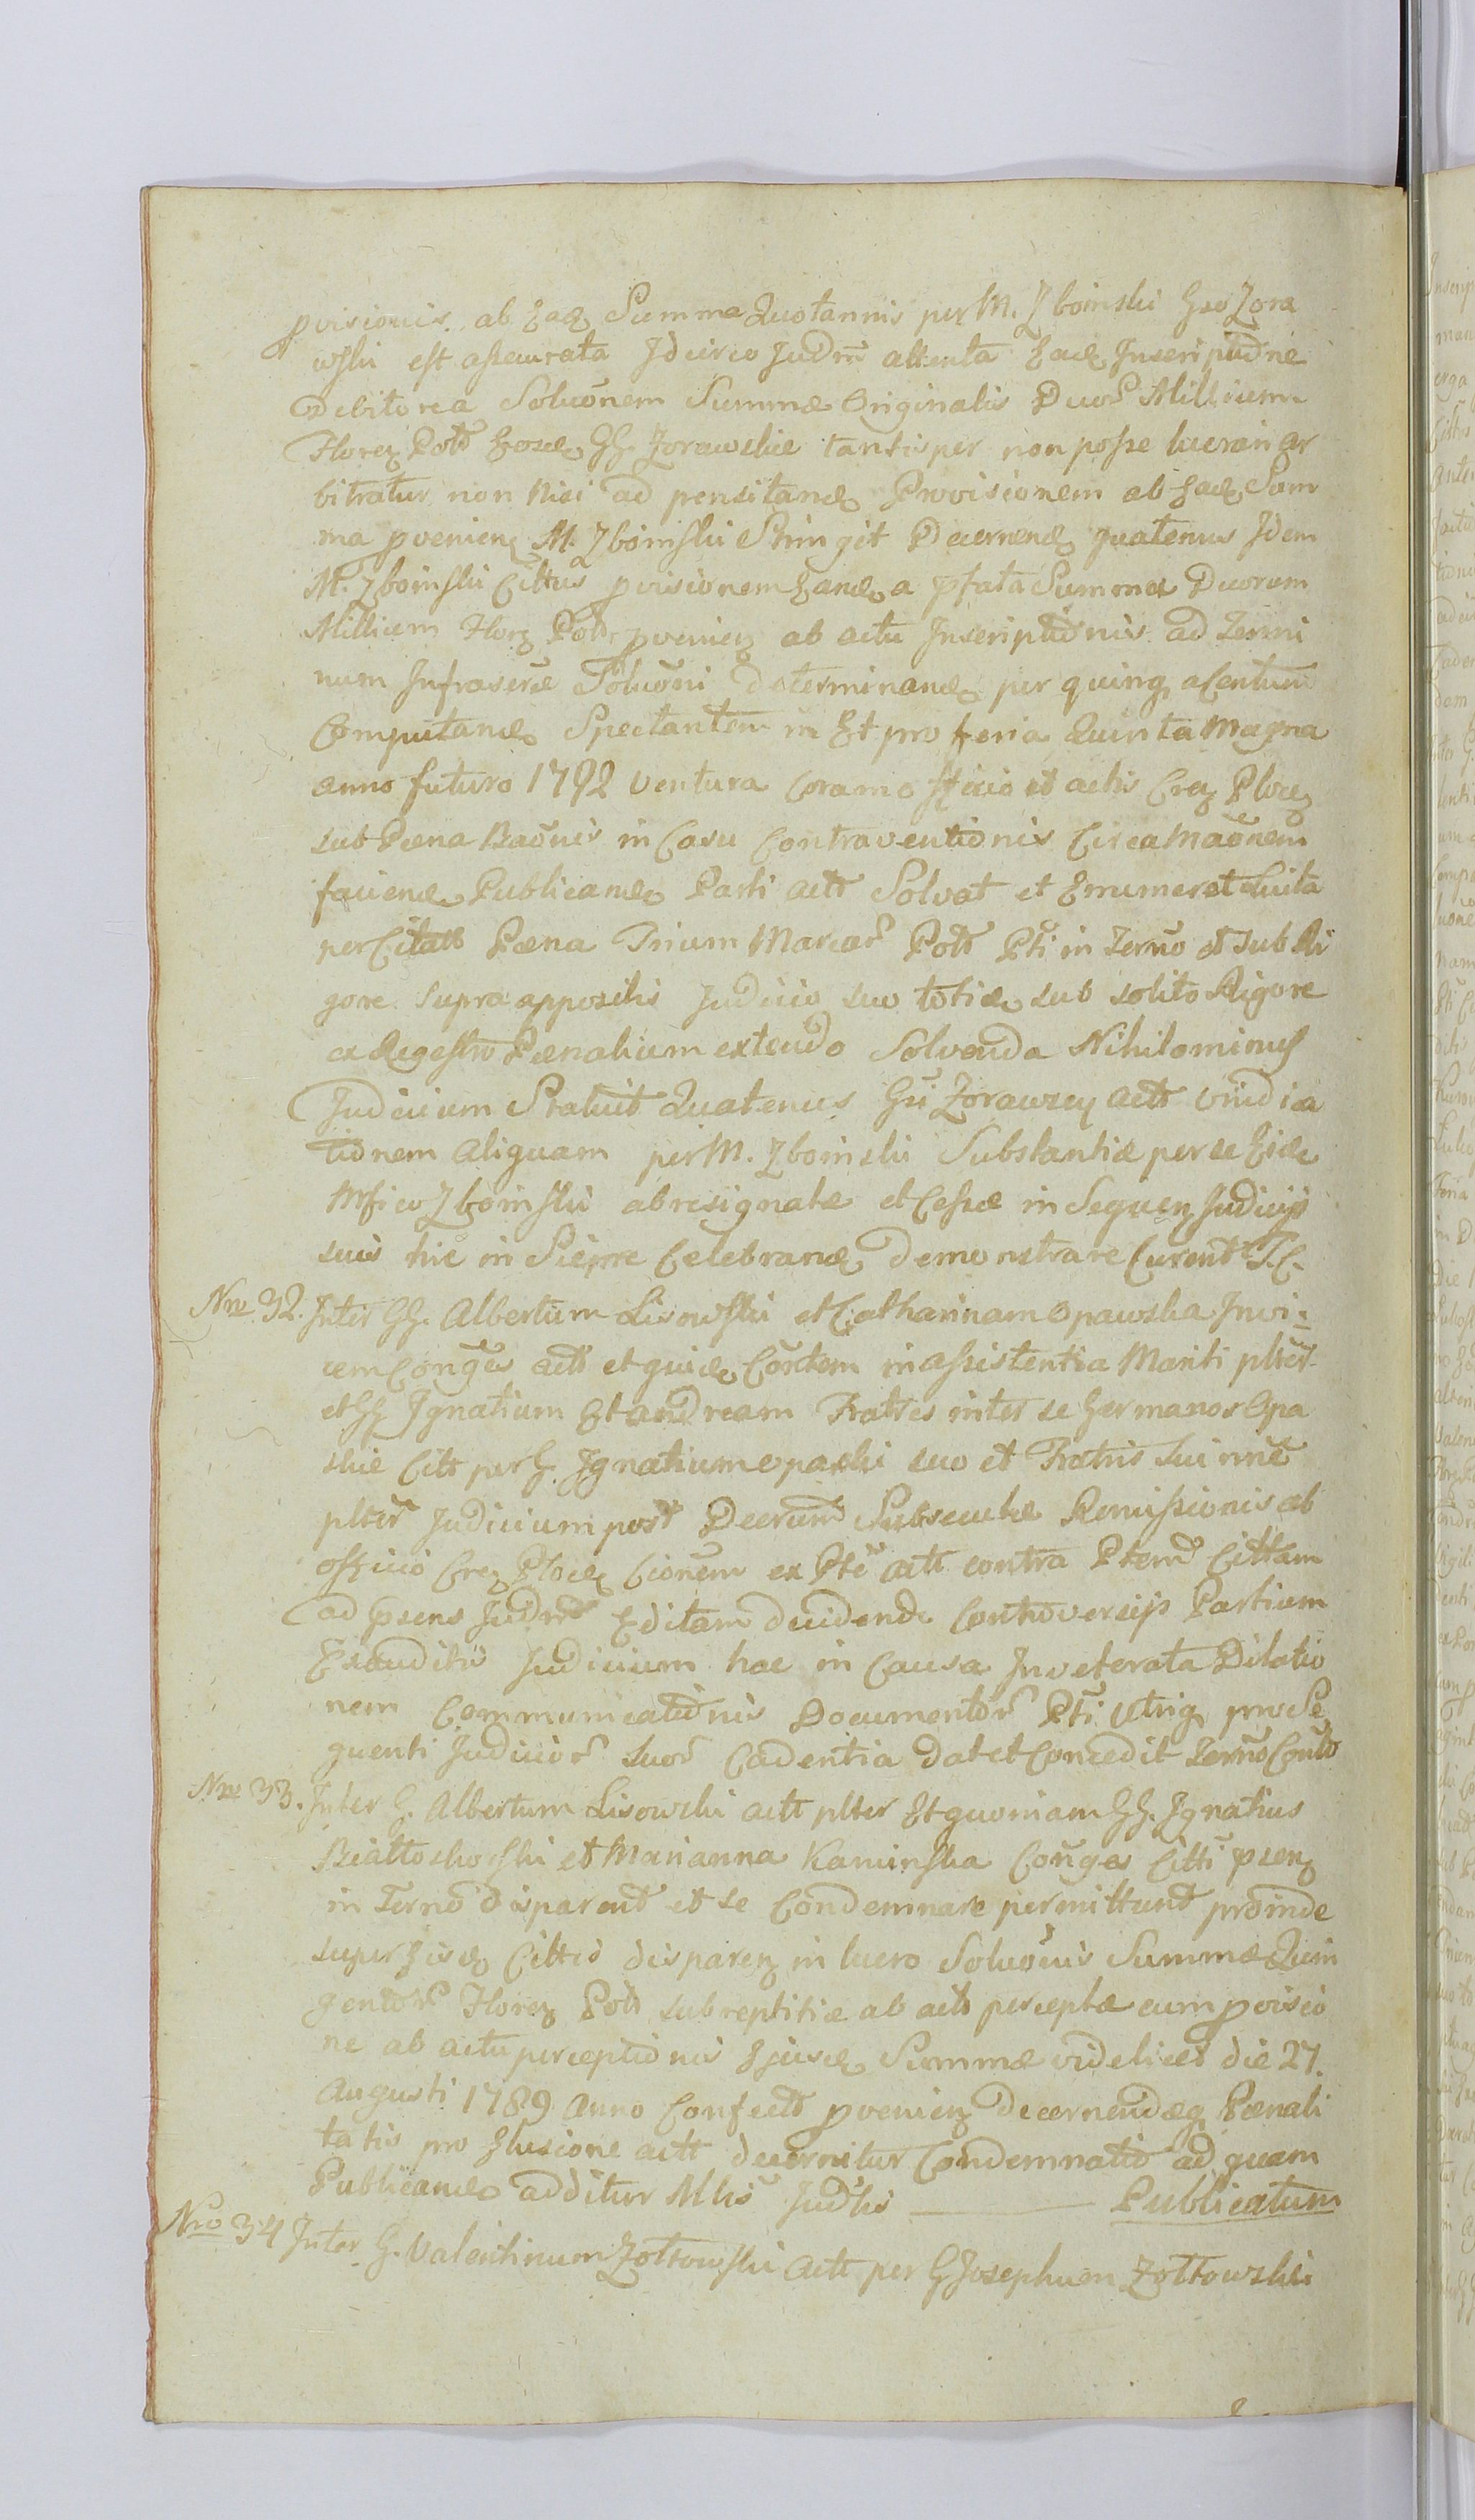 pvisionis ab Eadq Summa Quotannis per M. Zboinski Gso Zora
wski est assecurata Idcirco Judm attenta Eadq Inscriptione
Debitorea Soluonem Summæ Originalis Duor Millium
Florez Polt Eosdq GG. Zorawskie tantisper non posse lucrari ar
bitratur non nisi ad pensitandq Provisionem ab Eadq Sum
ma pvenienz M. Zboinski Stringit Decernendq quatenus Idem
M. Zboinski Cittus pvisionem Eandq a pfata Summa Duorum
Millium Florz Polt pvenienz ab actu Inscriptionis ad Termi
num Infrascrē Soluōni determinandq per quinq a Centum
Computandq Spectantem in Et pro feria Quinta Magna
anno futuro 1792 ventura coram officio et actis Crez Plocz
sub Pæna Baōnis in Casu Contraventionis Circa Maōnem
faciendq Publicandq Parti actt Solvat et Enumeret Luita
per Citatt Pæna Trium Marcar Polt Pti in Termo et sub Ri
gore supra appositis Judicio suo toties sub solito Rigore
ex Regestro Pænalium extendo Solvenda Nihilominus
Judicium Statuit Quatenus Gsi Zorawscy actt vindica
tionem aliquam per M. Zboinski Substantiæ per se Eidq
Mfico Zboinski abresignatæ et Cessæ in Sequenz Judicijs
suis hic in Sierpce Celebrandq demonstrare Curent T.C.
Nro 32. Inter GG. Albertum Lisowski et Catharinam Opawska Invi-
cem Conges actt et quidq Cortem in assistentia Mariti plter
et GG Ignatium Et andream Fratres inter se Germanos Opa
skie Citt per G. Ignatium Opaski suo et Fratris sui nme
plter Judicium post Decrum Subsecutæ Remissionis ab
officio Crez Plocz Cionem ex Pte actt contra Ptem Cittam
ad psens Judm Editam decidende Controversijs Partium
Exauditis Judicium hac in Causa Inveterata Dilatio
nem Communicationis Documentor Pti Utriq pro Se
quenti Judicior suor Cadentia dat et Concedit Termo Conto
Nro 33. Inter G. Albertum Lisowski actt plter Et quoniam GG. Ignatius
Białłoskorski et Marianna Kaminska Conges Citti psenz
in Termo disparent et se Condemnare permittunt proinde
super Eisdq Cittis disparenz in lucro Soluonis Summæ Quin
gentor Florez Polt subreptitiæ ab actt perceptæ cum pvisio
ne ab actu perceptionis Ejusdq Summæ videlicet die 27.
Augusti 1789 anno Confecto pvenienz decernendæq Pænali
tatis pro Elusione actt decernitur Condemnatio ad quam
Publicandq additur Mlis Judlis ——— Publicatum
Nro 34 Inter G. Valentinum Zołtowski actt per G Josephum Zołtowski